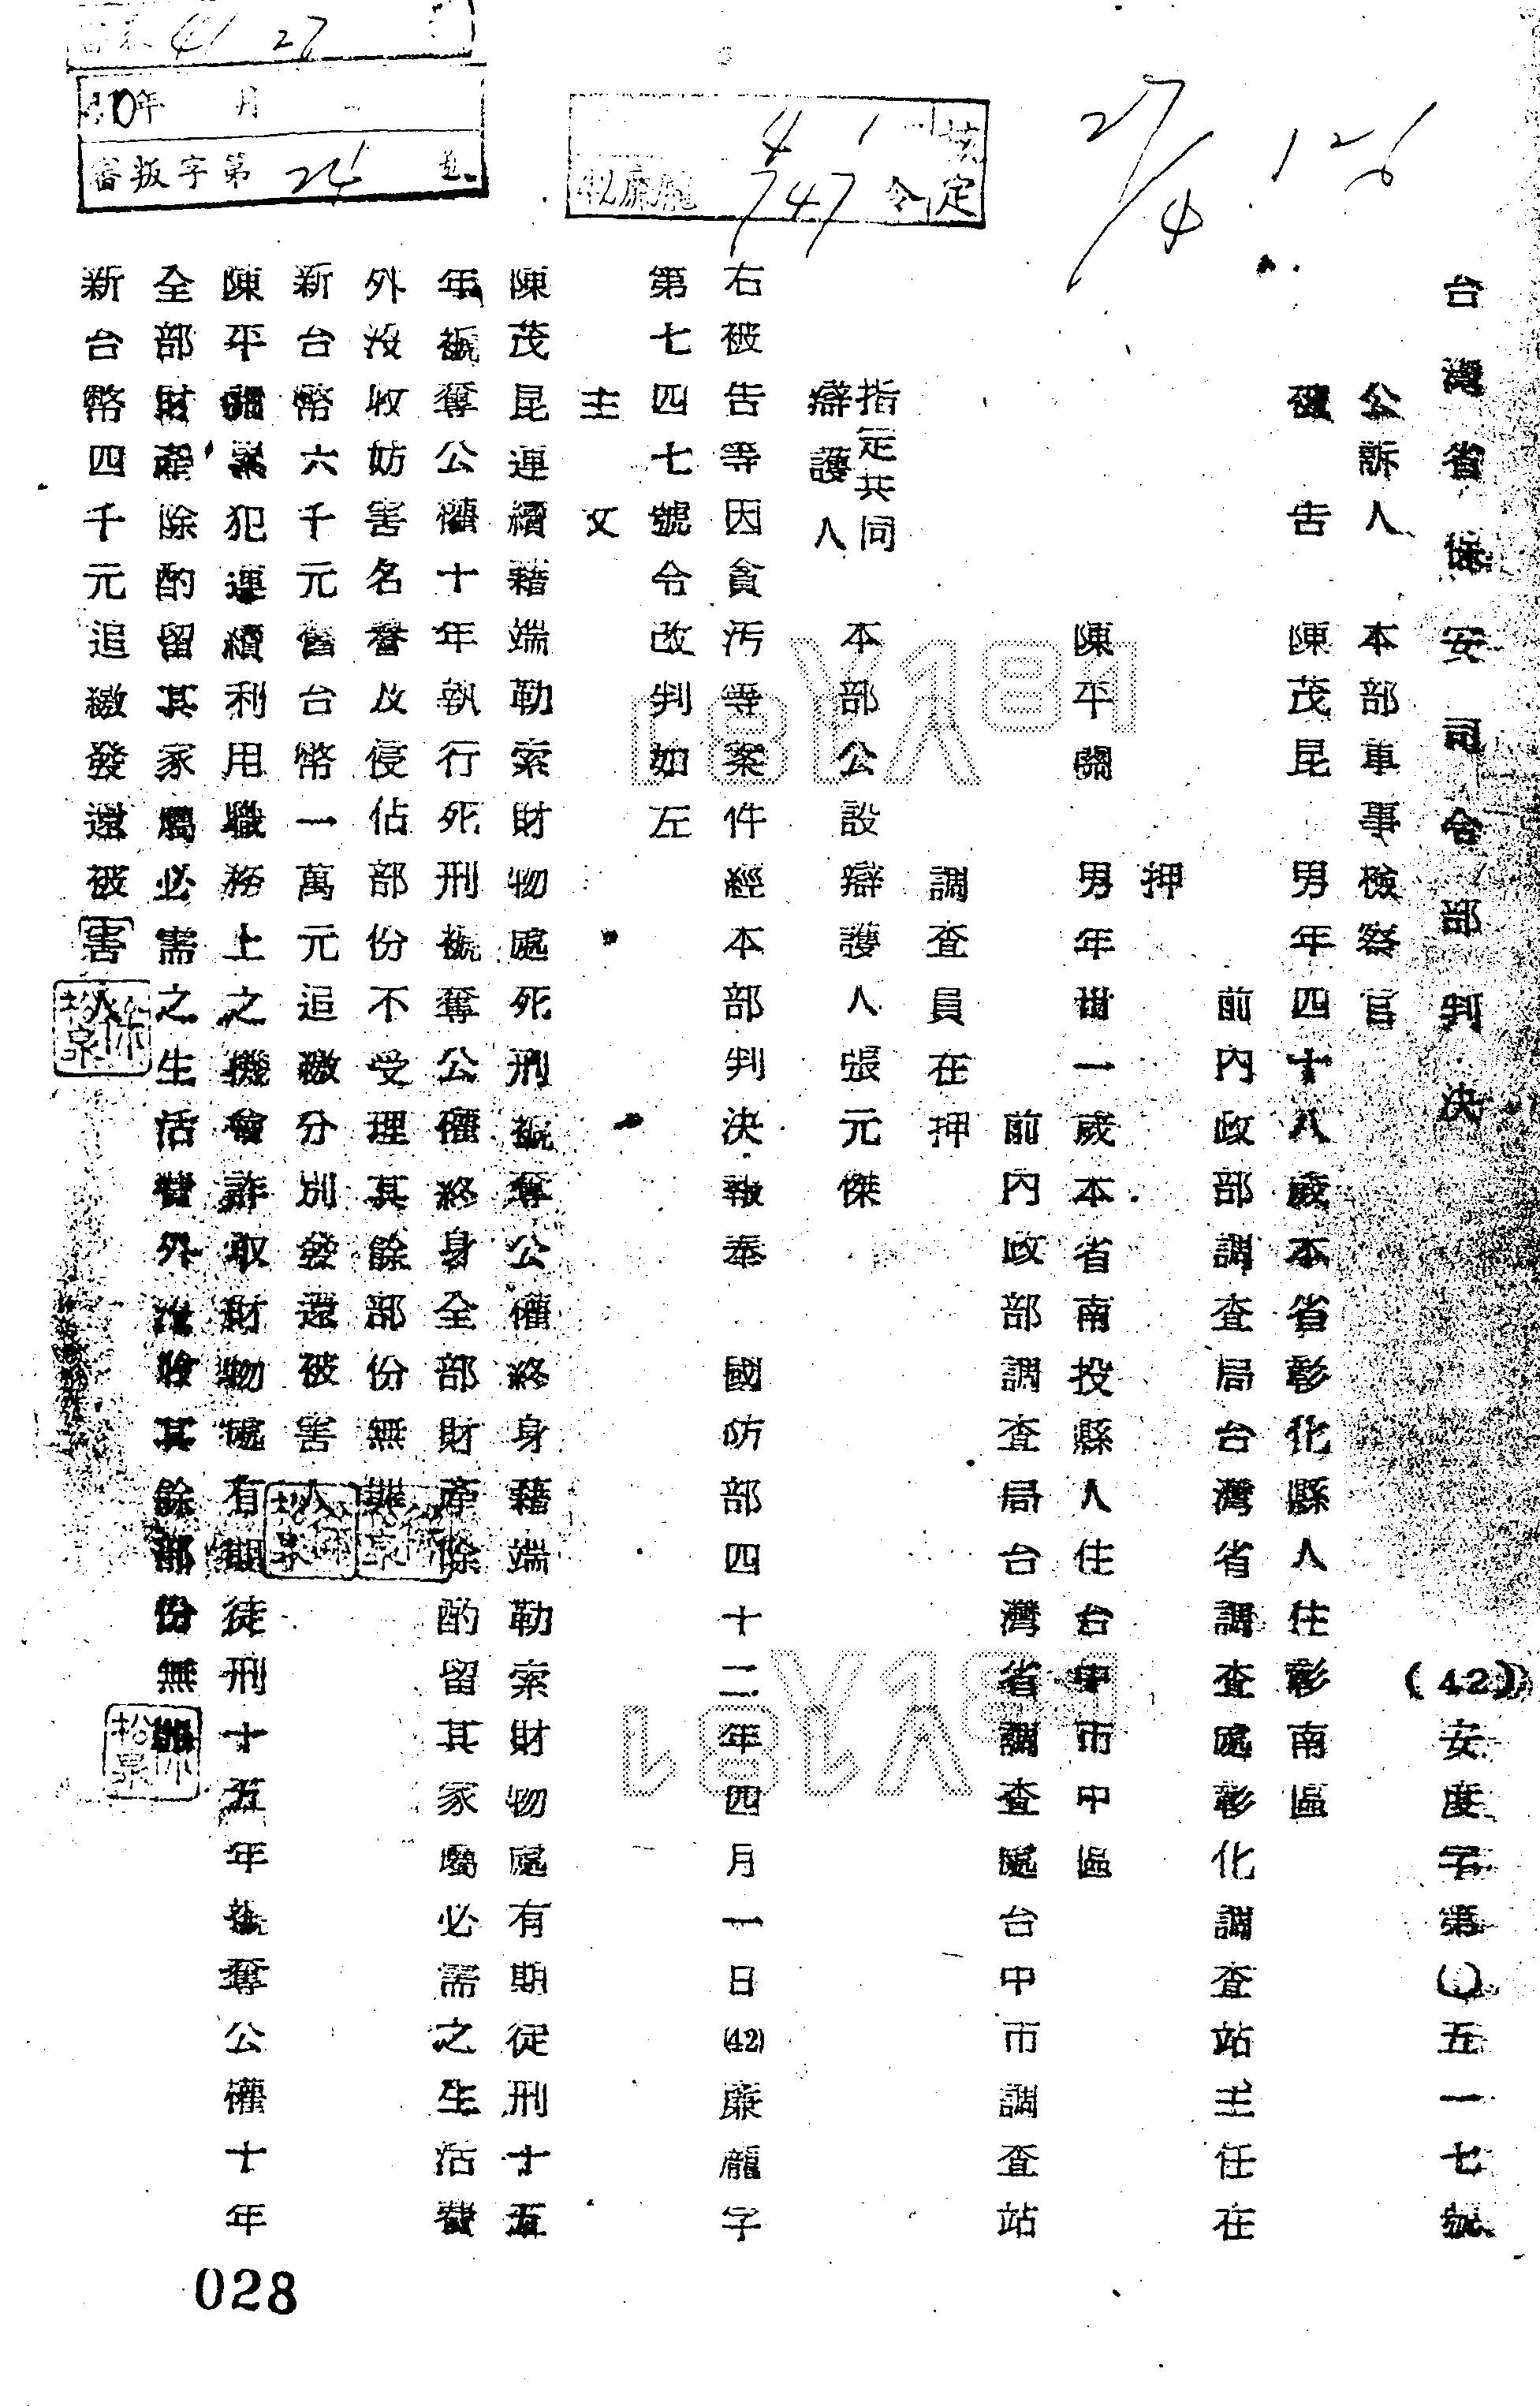 台灣省保安司令部判決
(42)安度字第〇五一七號
公訴人 本部軍事檢察官
被告 陳茂昆 男年四十八歲本省彰化縣人住彰南區
前內政部調查局台灣省調查處彰化調查站主任在
押
陳平關 男年卅一歲本省南投縣人住台中市中區
前內政部調查局台灣省調查處台中市調查站
調查員在押
指定共同
辯護人 本部公設辯護人張元傑
右被告等因貪污等案件經本部判決報奉 國防部四十二年四月一日(42)廉龐字
第七四七號令改判如左
主文
陳茂昆連續藉端勒索財物處死刑褫奪公權終身藉端勒索財物處有期徒刑十五
年褫奪公權十年執行死刑褫奪公權終身全部財產除酌留其家屬必需之生活費
外沒收妨害名譽及侵佔部份不受理其餘部份無罪
新台幣六千元舊台幣一萬元追繳分別發還被害人
陳平關累犯連續利用職務上之機會詐取財物處有期徒刑十五年褫奪公權十年
全部財產除酌留其家屬必需之生活費外沒收其餘部份無罪
新台幣四千元追繳發還被害人
年 月
審叛字第 24 號
核定
4 1
747 令
27/4 126
41 27
V181
V181
V181
V181
028